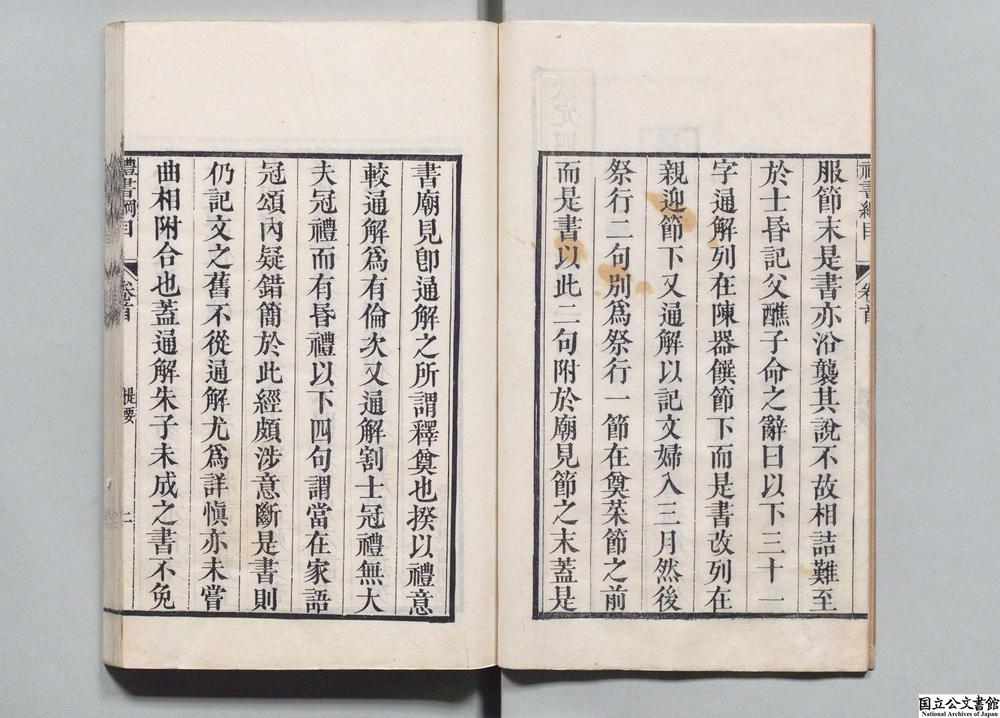 禮書綱目
卷首
服節末是書亦沿襲其說不故相詰難至
於士昏記父醮子命之辭曰以下三十一
字通解列在陳器饌節下而是書改列在
親迎節下又通解以記文婦入三月然後
祭行二句別爲祭行一節在奠菜節之前
而是書以此二句附於廟見節之末蓋是
書廟見卽通解之所謂釋奠也揆以禮意
較通解爲有倫次又通解割士冠禮無大
夫冠禮而有昏禮以下四句謂當在家語
冠頌內疑錯簡於此經頗涉意斷是書則
仍記文之舊不從通解尤爲詳愼亦未嘗
曲相附合也蓋通解朱子未成之書不免
禮書綱目
卷首
提要
二
国立公文書館
National Archives of Japan